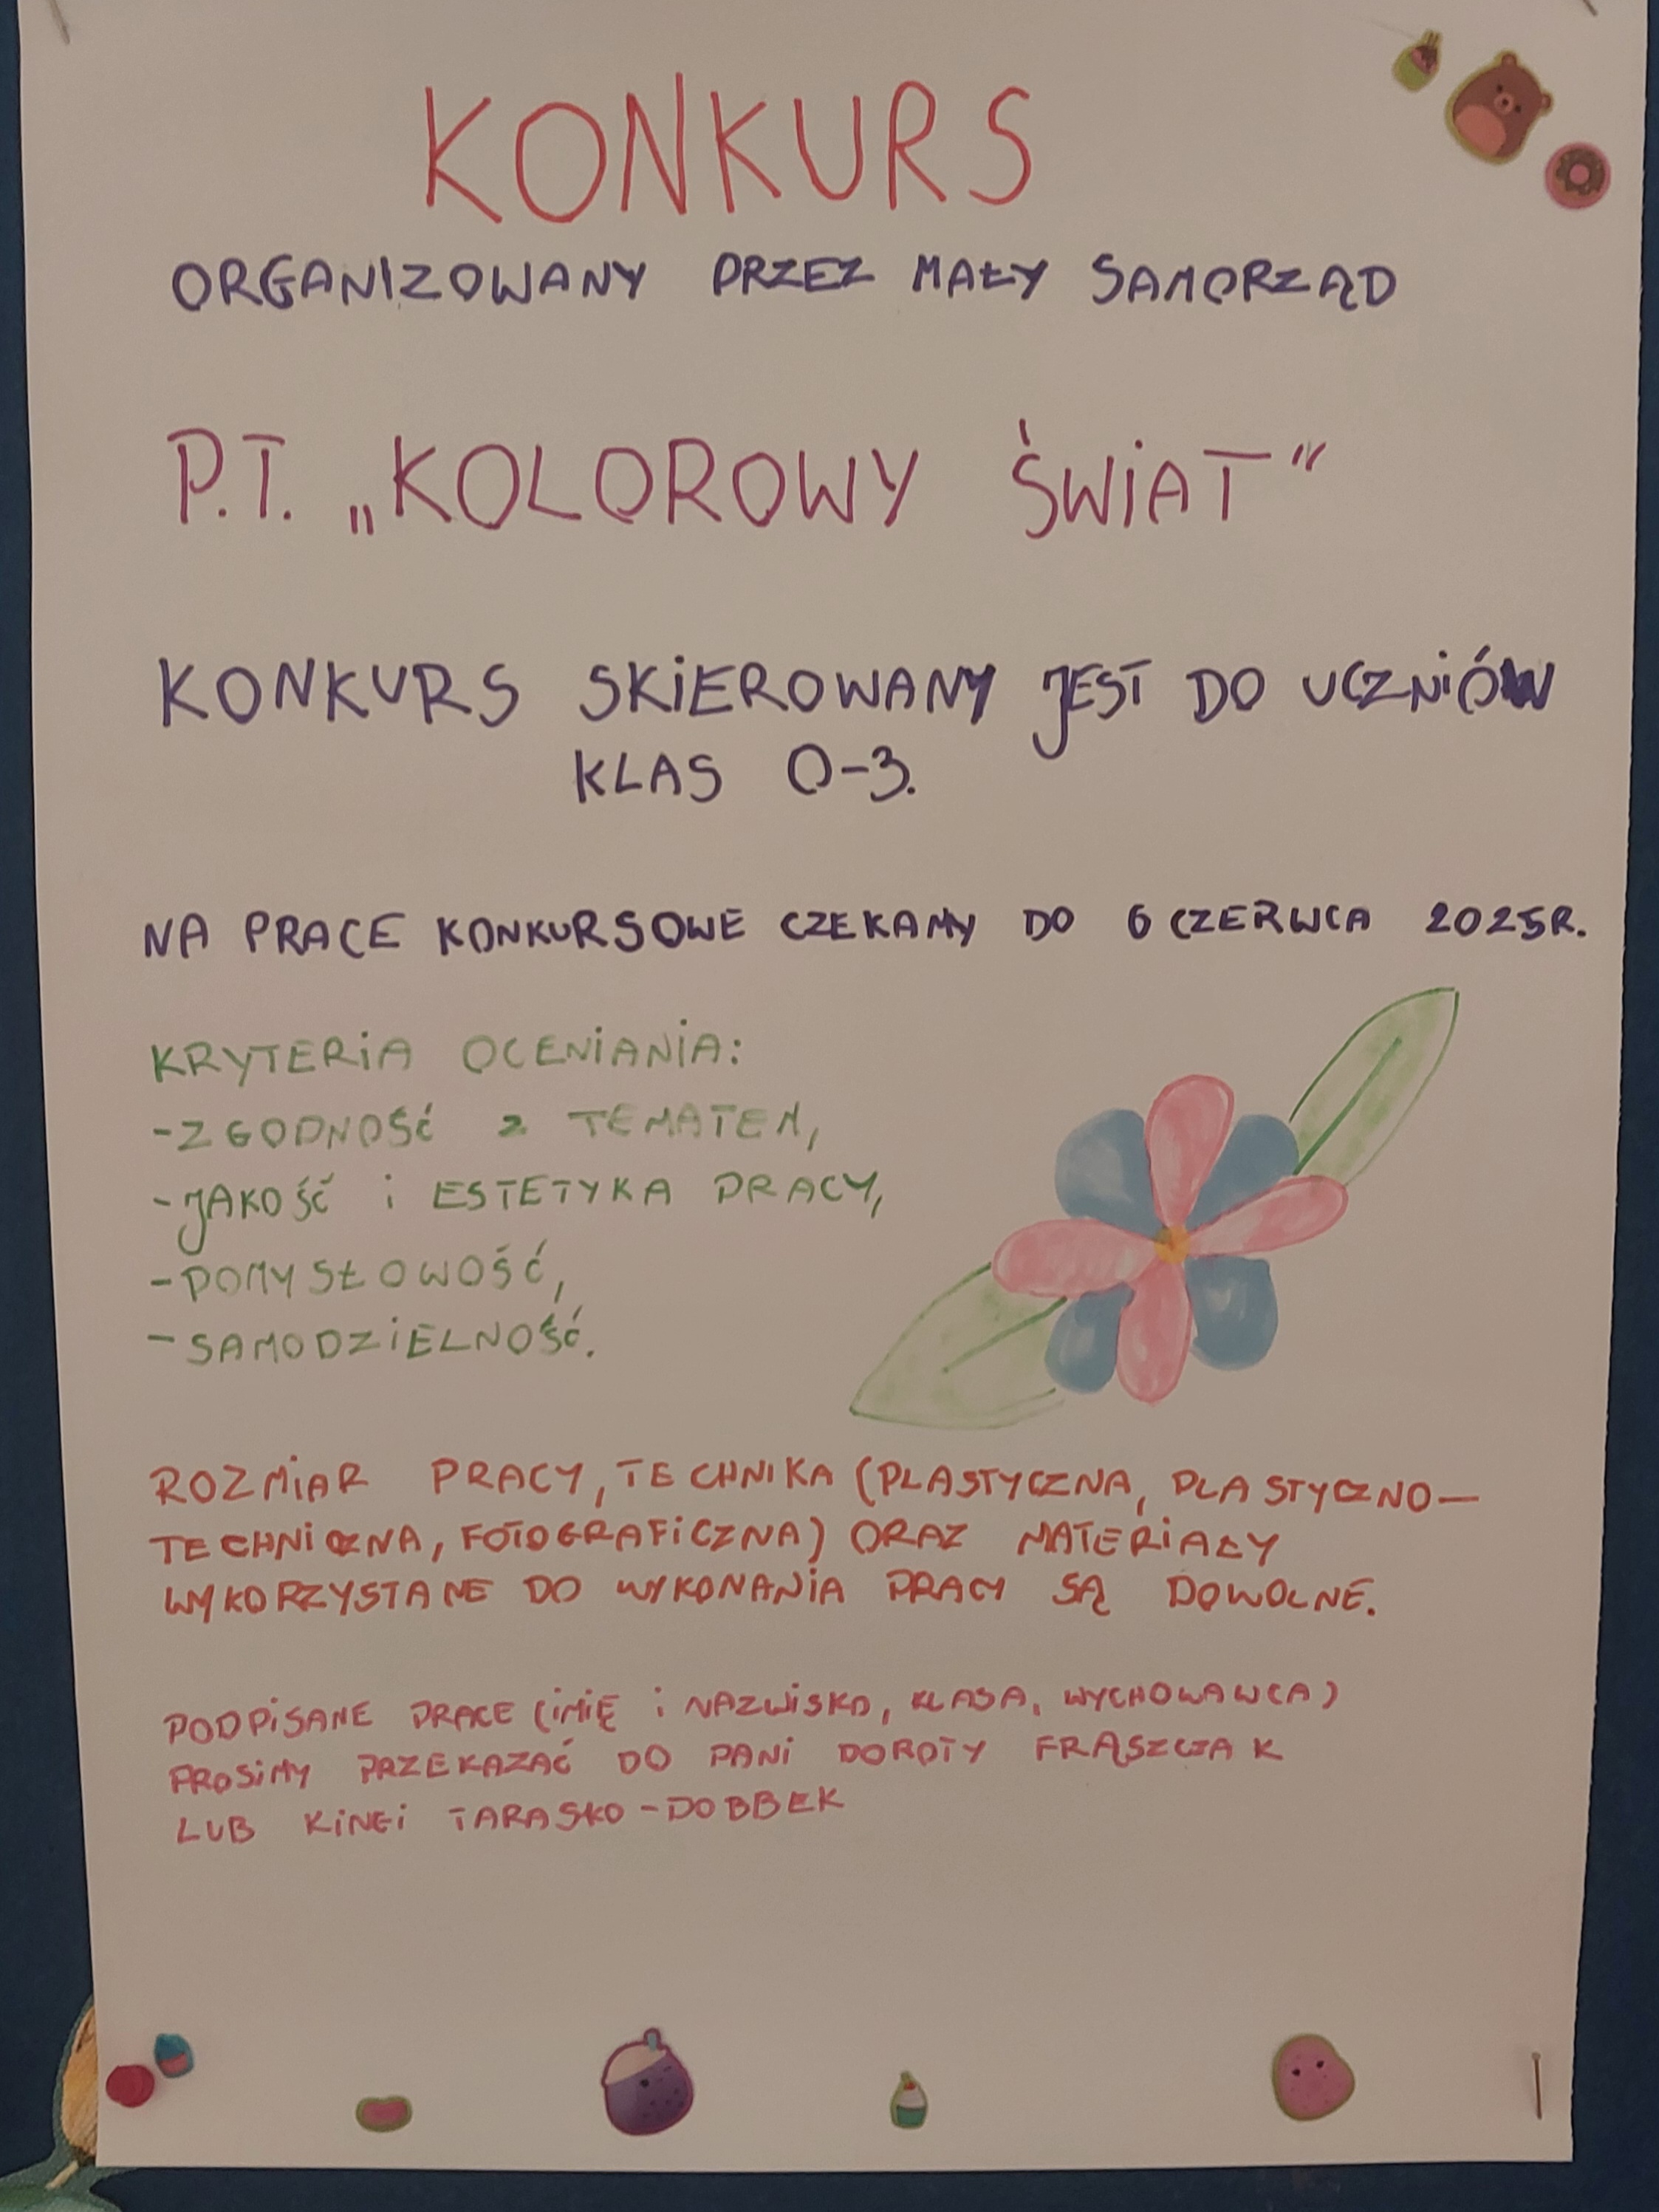 KONKURS
ORGANIZOWANY PRZEZ MAŁY SAMORZĄD
P.T. „KOLOROWY ŚWiAT"
KONKURS SKiEROWANY JEST DO UCZNiÓW
KLAS 0-3.
NA PRACE KONKURSOWE CZEKAMY DO 6 CZERWCA 2025R.
KRYTERiA OCENiANiA:
-ZGODNOŚĆ Z TEMATEM,
-JAKOŚĆ i ESTETYKA PRACY,
-POMYSŁOWOŚĆ,
-SAMODZiELNOŚĆ.
ROZMiAR PRACY, TECHNiKA (PLASTYCZNA, PLASTYCZNO-
TECHNiCZNA, FOTOGRAFiCZNA) ORAZ MATERiAŁY
WYKORZYSTANE DO WYKONANiA PRACY SĄ DOWOLNE.
PODPiSANE PRACE (iMiĘ i NAZWiSKO, KLASA, WYCHOWAWCA)
PROSiMY PRZEKAZAĆ DO PANi DOROTY FRĄSZCZAK
LUB KiNGi TARASKO-DOBBEK